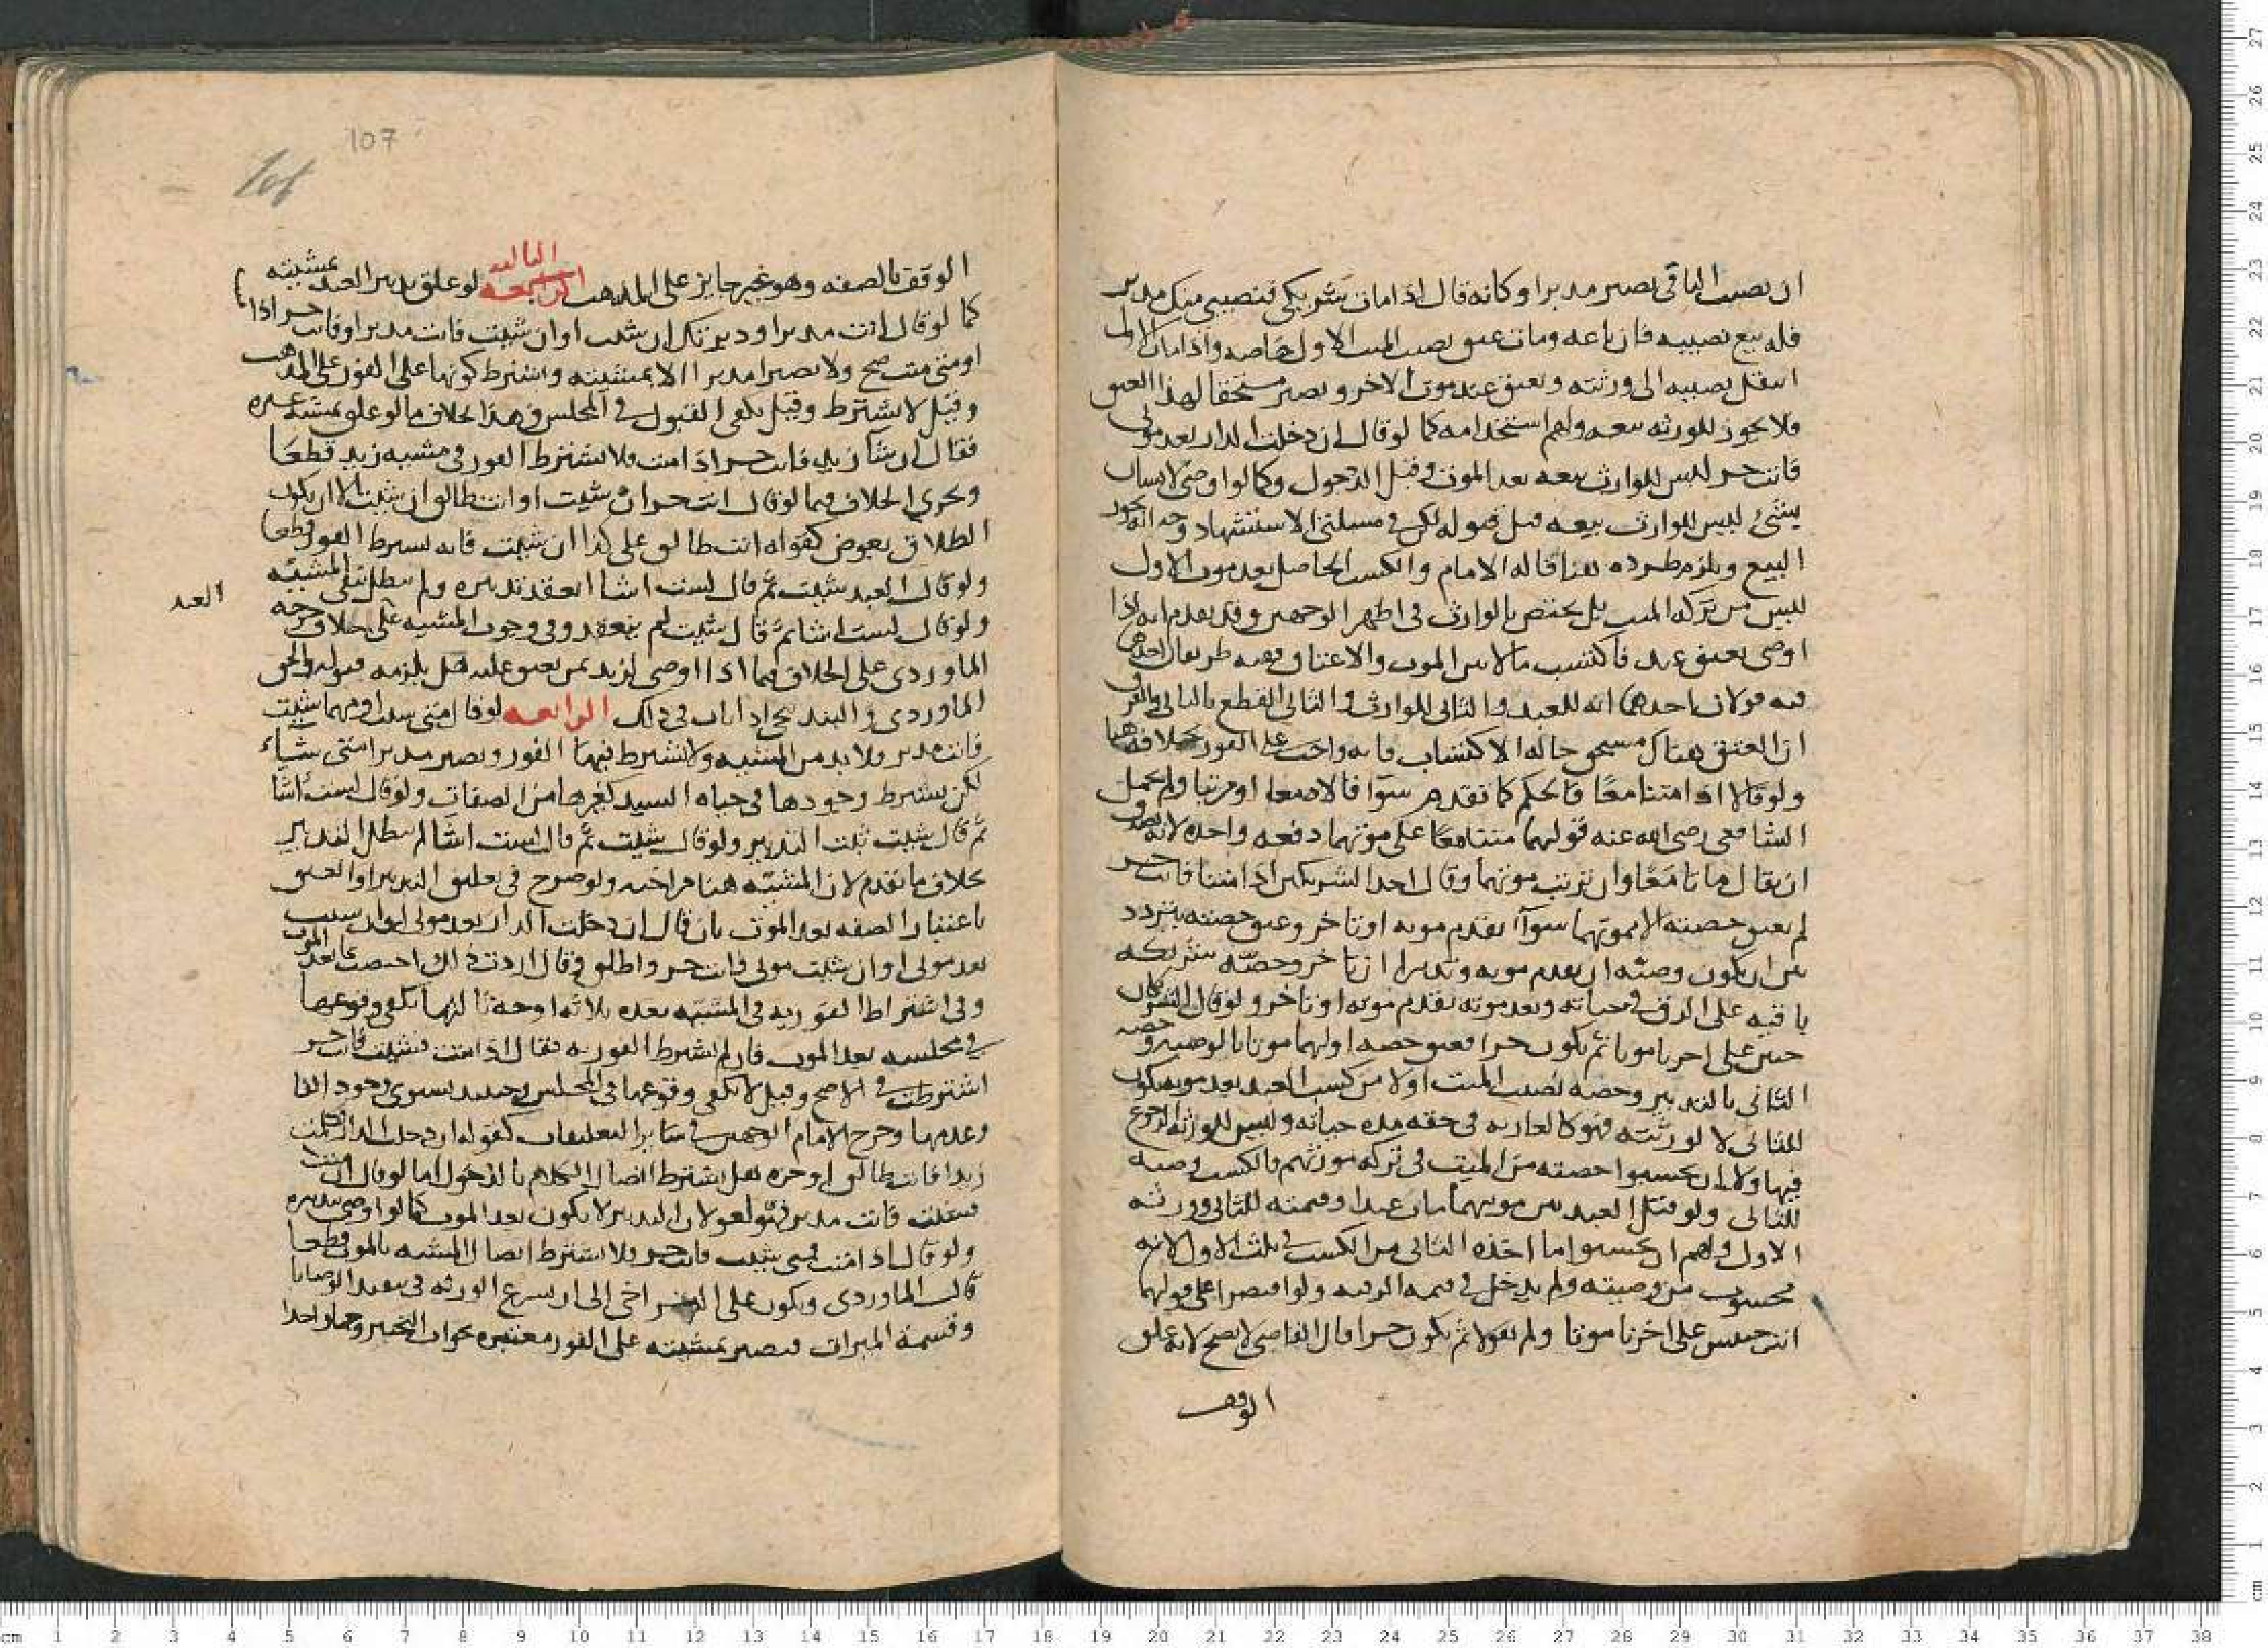 ان نصيب الباقي يصير مدبرا وكانه قال اذا مات شريكي فنصيبي منك مدبر
فله بيع نصيبه فان باعه ومات عتق نصيب الميت الاول خاصه واذا مات احدهما
انتقل نصيبه الى ورثته ويعتق عند موت الاخر ويصير مستحقا لهذا العتق
فلا يجوز للورثه بيعه ولهم استخدامه كما لو قال ان دخلت الدار بعد موتي
فانت حر ليس للوارث بيعه بعد الموت وقبل الدخول وكما لو اوصى لانسان
بشئ ليس للوارث بيعه قبل قبوله لكن في مسلتنا الاستشهاد وجه انه يجوز
البيع ويلزم طرده هنا قاله الامام والكسب الحاصل بعد موت الاول
ليس من تركه الميت بل يختص بالوارث في اظهر الوجهين وقد تقدم انه اذا
اوصى بعتق عبد فاكتسب مالا بين الموت والاعتاق ففيه طريقان احدهما
فيه قولان احدهما انه للعبد والثاني للوارث والثاني القطع بالثاني والفرق
ان العتق هناك مستحق حاله الاكتساب فانه واجب على الفور بخلافه هنا
ولو قالا اذا متنا معا فالحكم كما تقدم سوآ قالا معا او مرتبا ولم يحمل
الشافعي رضي الله عنه قولهما متنا معا على موتهما دفعه واحده لانه يصدق
ان يقال ماتا معا وان ترتب موتهما وقال احد الشريكين اذا متنا فانت حر
لم يعتق حصته الا بموتهما سوآ تقدم موته او تاخر وعتق حصته يتردد
بين ان يكون وصيه ان تقدم موته وتدبيرا ان تاخر وحصه شريكه
باقيه على الرق في حياته وبعد موته تقدم موته او تاخر ولو قال الشريكان
حبس على اخرنا موتا ثم يكون حرا فعتق حصه اولهما موتا بالوصيه وحصه
الثاني بالتدبير وحصه نصيب الميت اولا من كسب العبد بعد موته يكون
للثاني لا لورثته فهو كالعاريه في حقه مده حياته وليس للورثه الرجوع
فيها ولا ان يحسبوا حصته من الميت في تركه مورثهم فالكسب وصيه
للثاني ولو قتل العبد بين موتهما مات عبدا وقيمته للثاني وورثه
الاول ولهم ان يحسبوا ما اخذه الثاني من الكسب في ثلث الاول لانه
محسوب من وصيته ولم يدخل في قيمه الرقبه ولو اقتصرا على قولهما
انت حبيس على اخرنا موتا ولم يقولا ثم يكون حرا قال القاضي لا يصح لانه علق
الوقف
107
الوقف بالصفه وهو غير جايز على المذهب الثالثه لو علق تدبير العبد بمشيته
كما لو قال انت مدبر او دبرتك ان شيت او ان شيت فانت مدبر او فانت حر اذا
او متى مت صح ولا يصير مدبرا الا بمشيته ويشترط كونها على الفور على المذهب
وقيل لا يشترط وقيل يكفي القبول في المجلس وهذا بخلاف ما لو علق بمشيه غيره
فقال ان شآ زيد فانت حر اذا مت فلا يشترط الفور في مشيه زيد قطعا
ويجري الخلاف فيما لو قال انت حر ان شيت او انت طالق ان شيت الا ان يكون
الطلاق بعوض كقوله انت طالق على كذا ان شيت فانه يشترط الفور قطعا
ولو قال العبد شيت ثم قال لست اشا انعقد تدبيره ولم يبطل بنفي المشيه
ولو قال لست اشا ثم قال شيت لم ينعقد وفي وجوب المشيه على خلاف خرجه
العبد
الماوردي على الخلاف فيما اذا اوصى لزيد بمن يعتق عليه هل يلزمه قبوله والحق
الماوردي والبندنيجي اذا بات في ذلك الرابعه لو قال متى شيت او مهما شيت
فانت مدبر ولا بد من المشيه ولا يشترط فيهما الفور ويصير مدبرا متى شاء
لكن يشترط وجودها في حياه السيد كغيرها من الصفات ولو قال لست اشا
ثم قال شيت ثبت التدبير ولو قال شيت ثم قال لست اشا لم يبطل التدبير
بخلاف ما تقدم لان المشيه هنا متراخيه ولو صرح في تعليق التدبير او العتق
باعتبار الصفه بعد الموت بان قال ان دخلت الدار بعد موتي او ان شيت
بعد موتي او ان شيت موتي فانت حر واطلق وقال اردت ذلك اختصت بما بعد الموت
وفي اشتراط الفوريه في المشيه بعده ثلاثه اوجه ثالثها يكفي وقوعها
في مجلسه بعد الموت فان لم نشترط الفوريه فقال اذا مت فشيت فانت حر
اشترطت في الاصح وقيل لا يكفي وقوعها في المجلس وحينيذ يستوي وجود الفا
وعدمها وخرج الامام الوجهين في ساير التعليقات كقوله ان دخلت الدار فكلمت
زيدا فانت طالق او حره هل يشترط اتصال الكلام بالدخول اما لو قال ان مت
فشيت فانت مدبر فهو لغو لان التدبير لا يكون بعد الموت كما لو اوصى بتدبيره
ولو قال اذا مت فمتى شيت فانت حر فلا يشترط اتصال المشيه بالموت قطعا
قال الماوردي ويكون على التراخي الى ان يسرع الورثه في تنفيذ الوصايا
وقسمه الميراث فيصير بمشيته على الفور معتبره بجواب التخيير وجها واحدا